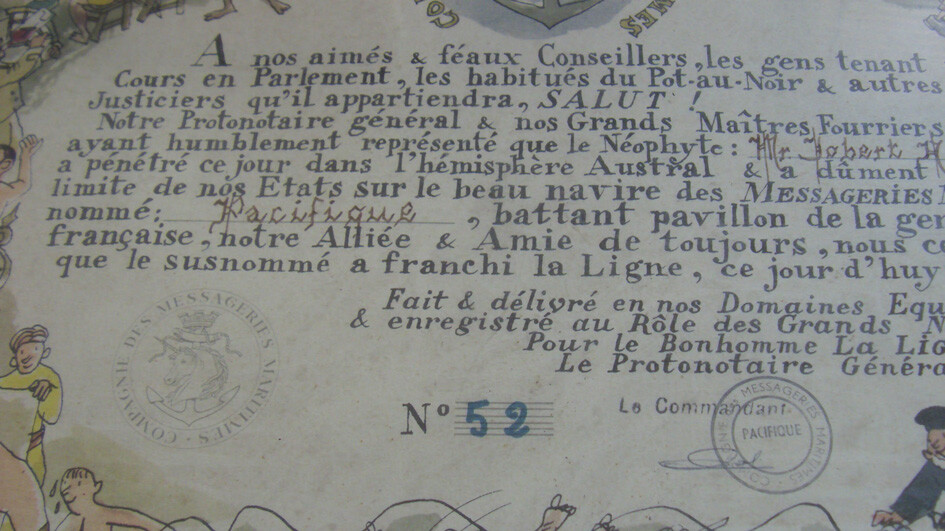 A nos aimés & féaux Conseillers, les gens tenant
Cours en Parlement, les habitués du Pot-au-Noir & autres
Justiciers qu'il appartiendra, SALUT !
Notre Protonotaire général & nos Grands Maîtres Fourriers
ayant humblement représenté que le Néophyte : Mr Robert
a pénétré ce jour dans l'hémisphère Austral & a dûment
limite de nos Etats sur le beau navire des MESSAGERIES
nommé: Pacifique, battant pavillon de la
française, notre Alliée & Amie de toujours, nous
que le susnommé a franchi la Ligne, ce jour d'huy
Fait & délivré en nos Domaines
& enregistré au Rôle des Grands
Pour le Bonhomme La
Le Protonotaire
COMPAGNIE DES MESSAGERIES MARITIMES
Nº 52
Le Commandant
MESSAGERIES MARITIMES
PACIFIQUE